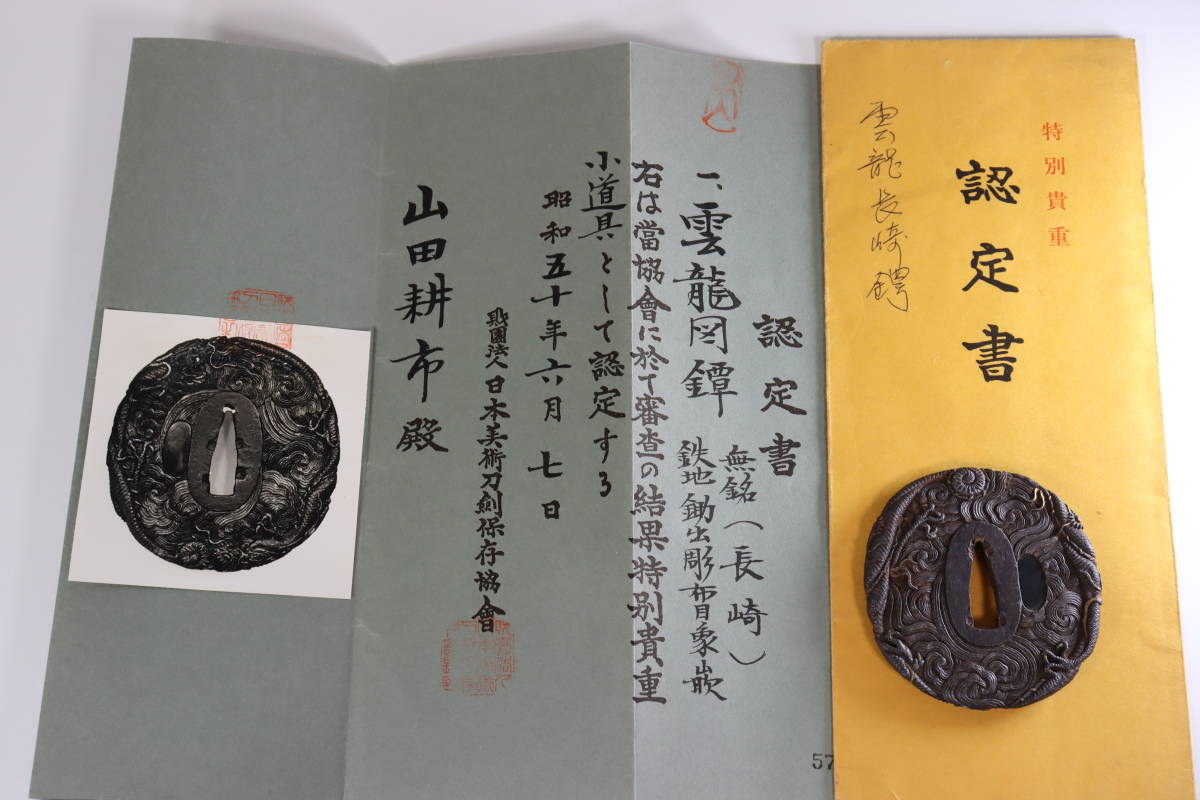 特別貴重
認定書
雲龍長崎鍔
認定書
一、雲龍図鐔
無銘(長崎)
鉄地鋤出彫布目象嵌
右は當協會に於て審査の結果特別貴重
小道具として認定する
昭和五十年六月七日
財團法人日本美術刀剣保存協會
山田耕市殿
57